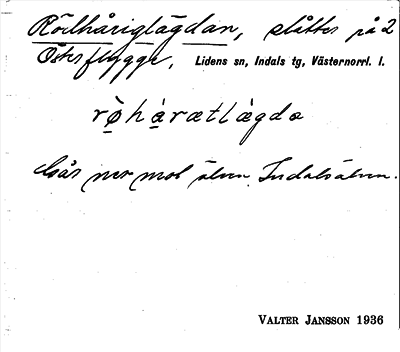 Rödhåriglägdan, slåtter på 2
Österflygge, Lidens sn, Indals tg, Västernorrl. l.
rø̀hạ́rætlàgda
Går ner mot älven, Indalsälven.
VALTER JANSSON 1936